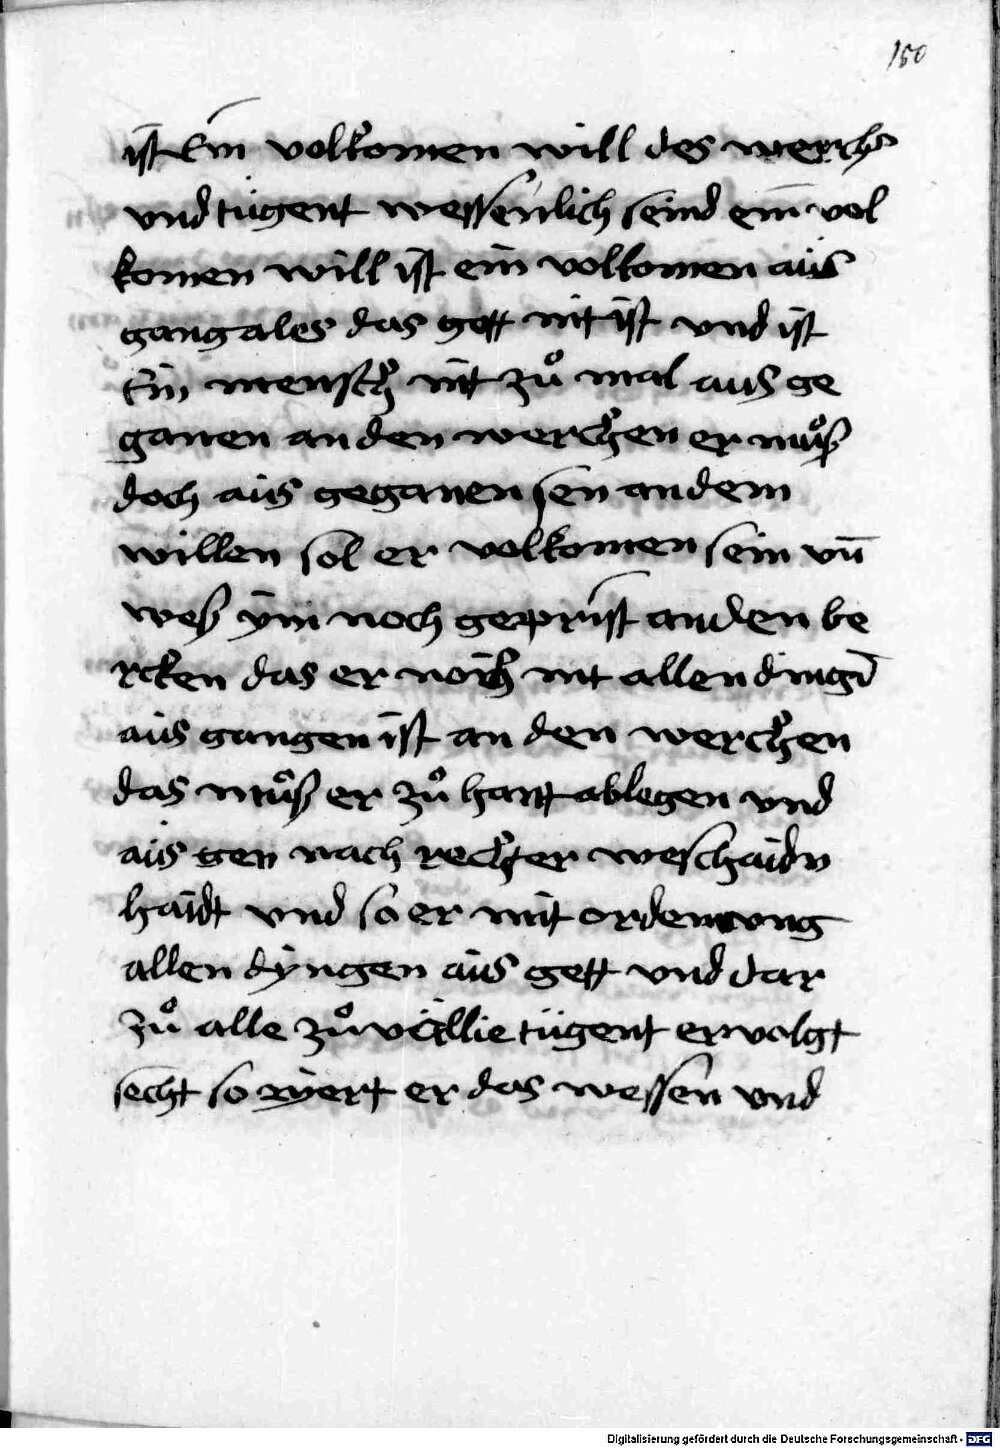 150
ist Ein volkomen will des werchs
vnd tugent wessenlich seind ein vol
komen will ist ein volkomen aus
gang ales das gott nit ist vnd ist
Ein mensch nit zů mal aus ge
ganen an den werchen er můß
doch aus geganen sen an dem
willen sol er volkomen sein vn̄
weß ym noch geprist an den be
rcken das er noch nit allen dingē
aus gangen ist an den werchen
das můß er zů hant ablegen vnd
aus gen nach rechter weschaidn
haidt vnd so er mit ordenung
allen dyngen aus gett vnd dar
zů alle zů tugent ervolgt
secht so er das wessen vnd
Digitalisierung gefördert durch die Deutsche Forschungsgemeinschaft - DFG